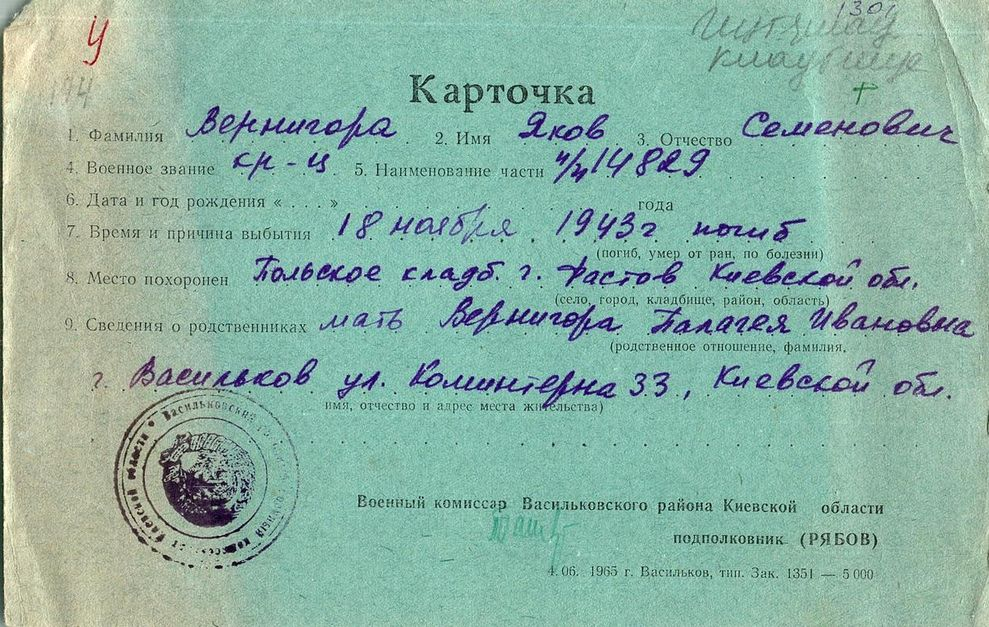 у
130
194
кладбище
Карточка
1. Фамилия Вернигора 2. Имя Яков 3. Отчество Семенович
4. Военное звание кр-ц 5. Наименование части п/п 14829
6. Дата и год рождения « . . . » . . . года
7. Время и причина выбытия 18 ноября 1943г погиб
(погиб, умер от ран, по болезни)
8. Место похоронен Польское кладб. г. Фастов Киевской обл.
(село, город, кладбище, район, область)
9. Сведения о родственниках мать Вернигора Палагея Ивановна
(родственное отношение, фамилия,
г. Васильков ул. Коминтерна 33, Киевской обл.
имя, отчество и адрес места жительства)
Васильковский Киевской области
Военный комиссар Васильковского района Киевской области
подполковник (РЯБОВ)
4.06. 1965 г. Васильков, тип. Зак. 1351 — 5 000